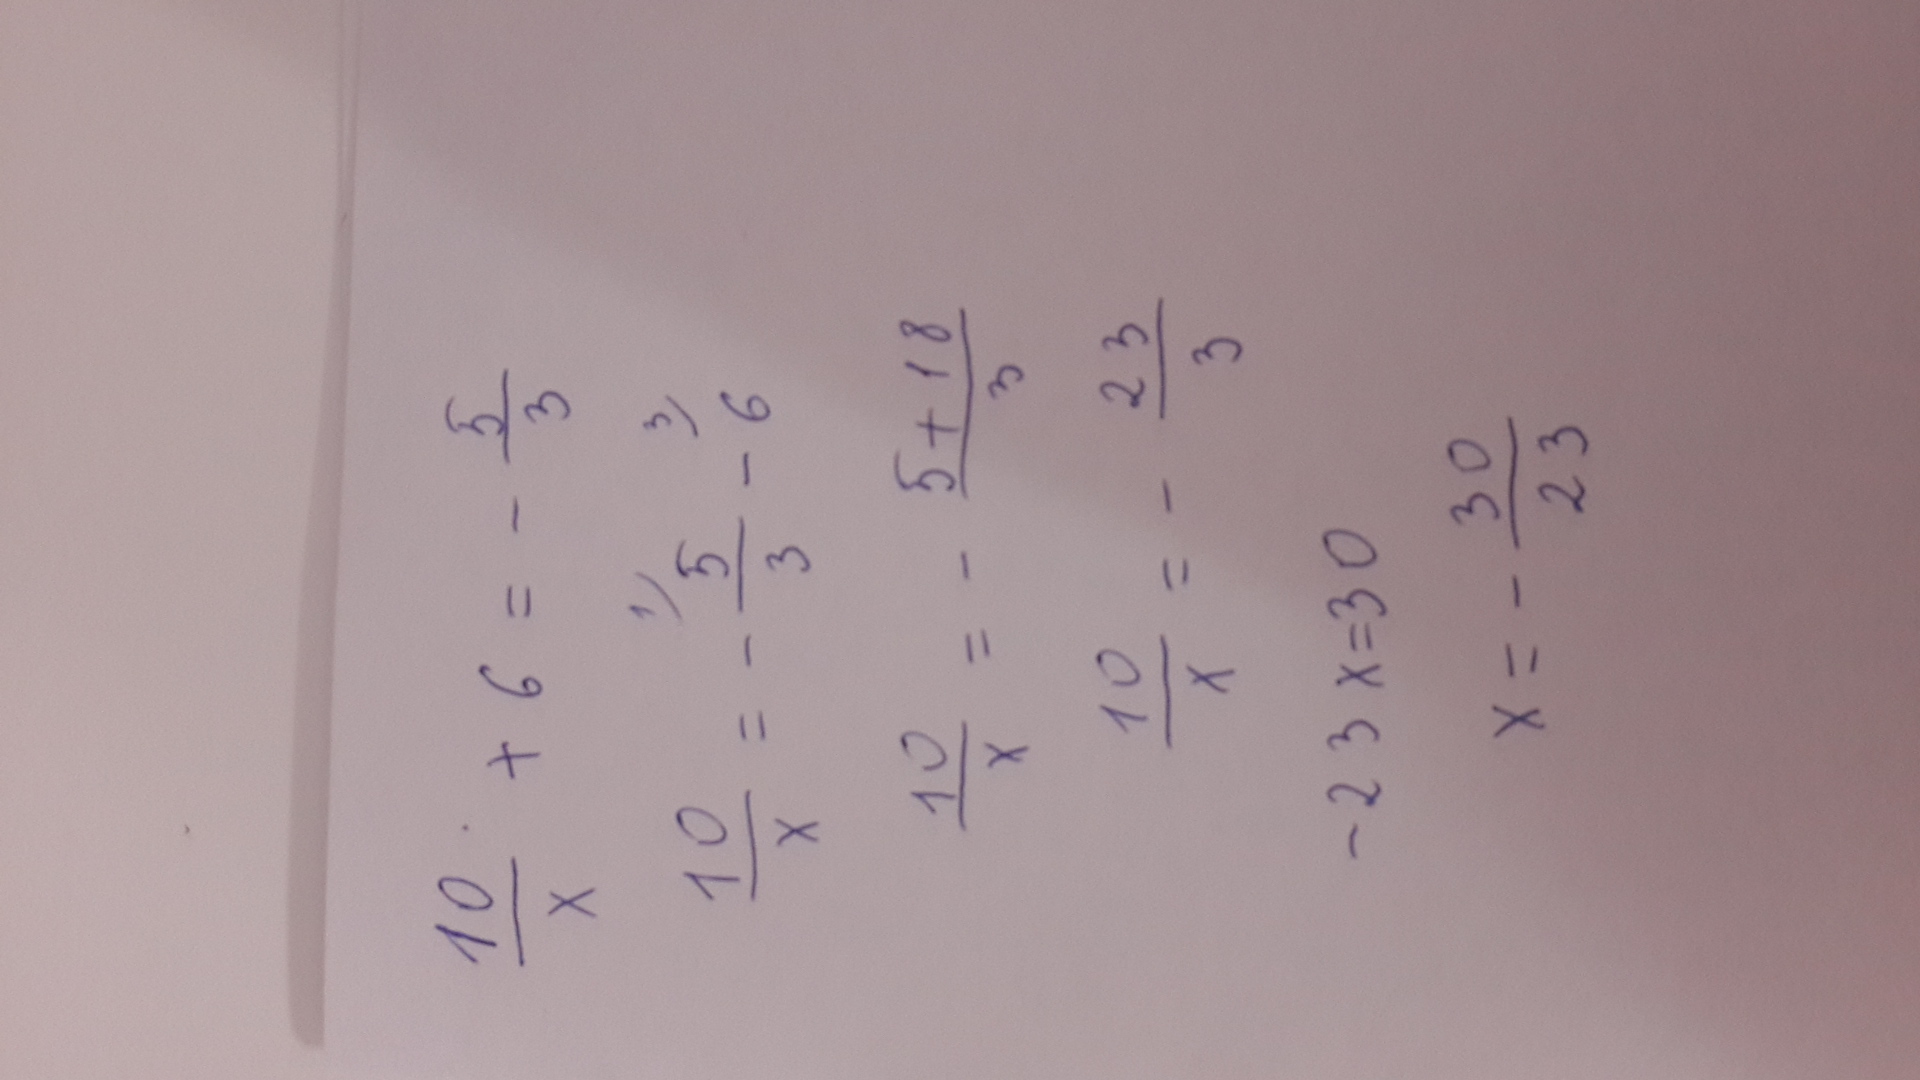 10/x + 6 = - 5/3
10/x = - ¹⁾5/3 - ³⁾6
10/x = - 5+18/3
10/x = - 23/3
-23x=30
x = - 30/23